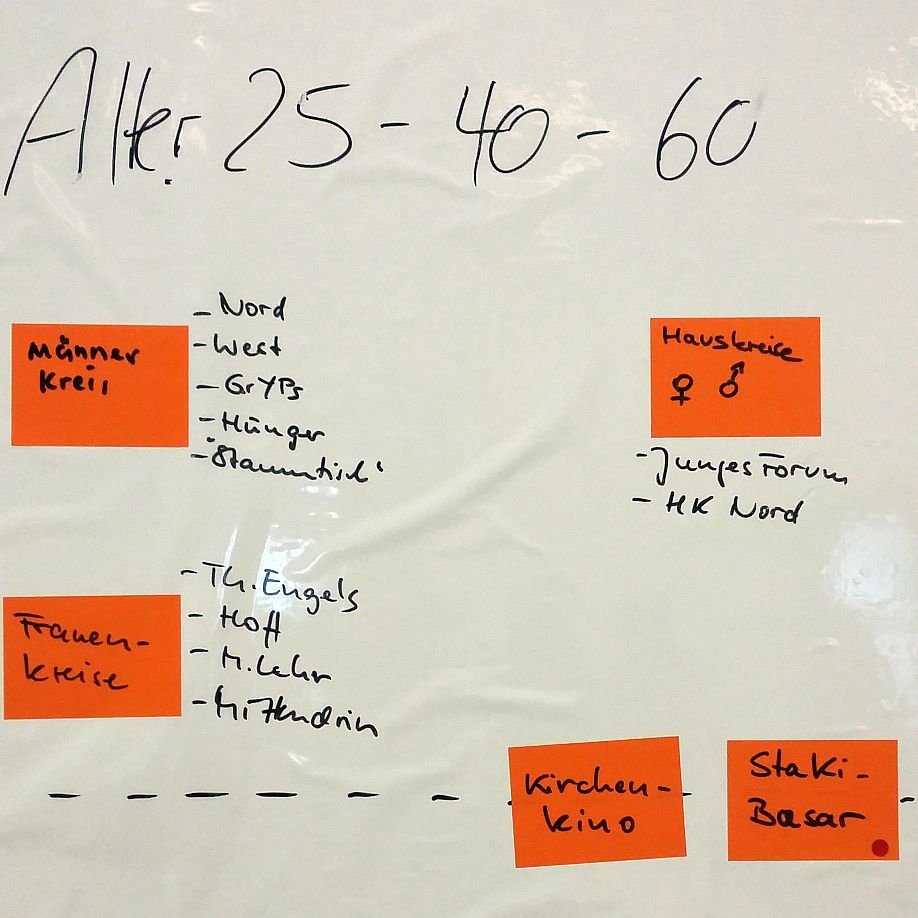 Alter 25 - 40 - 60
Männer
Kreis
- Nord
- West
- GrYPs
- Hünger
- "Stammtisch"
Hauskreise
♀ ♂
- Junges Forum
- HK Nord
Frauen-
kreise
- Th. Engels
- Hoff
- M. Lehr
Kirchen-
kino
Staki-
Basar